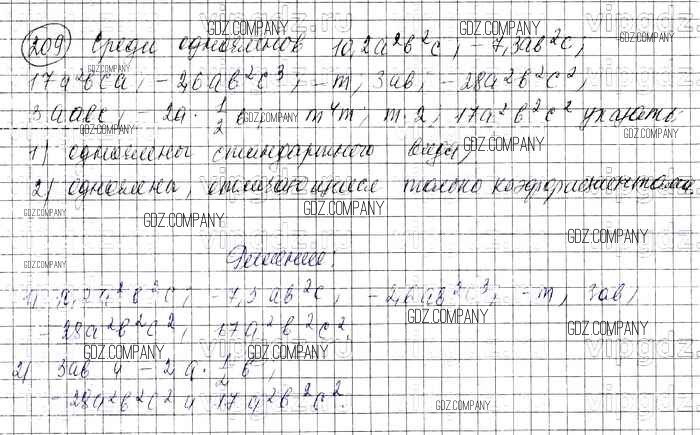 209 Среди одночленов 10,2a²b²c; -7,3ab²c;
17a²bca; -2bab²c³; -m, 3ab, -28a²b²c²,
3aabc, -2a·1/2b, m⁴m; m·2; 17a²b²c² указать
1) одночлены стандартного вида;
2) одночлены, отличающиеся только коэффициентами.
Решение:
1) 10,2a²b²c; -7,3ab²c, c³; -m, 3ab,
-28a²b²c², 17a²b²c².
2) 3ab и -2a·1/2b,
-28a²b²c² и 17a²b²c².
GDZ.COMPANY
vipgdz.ru